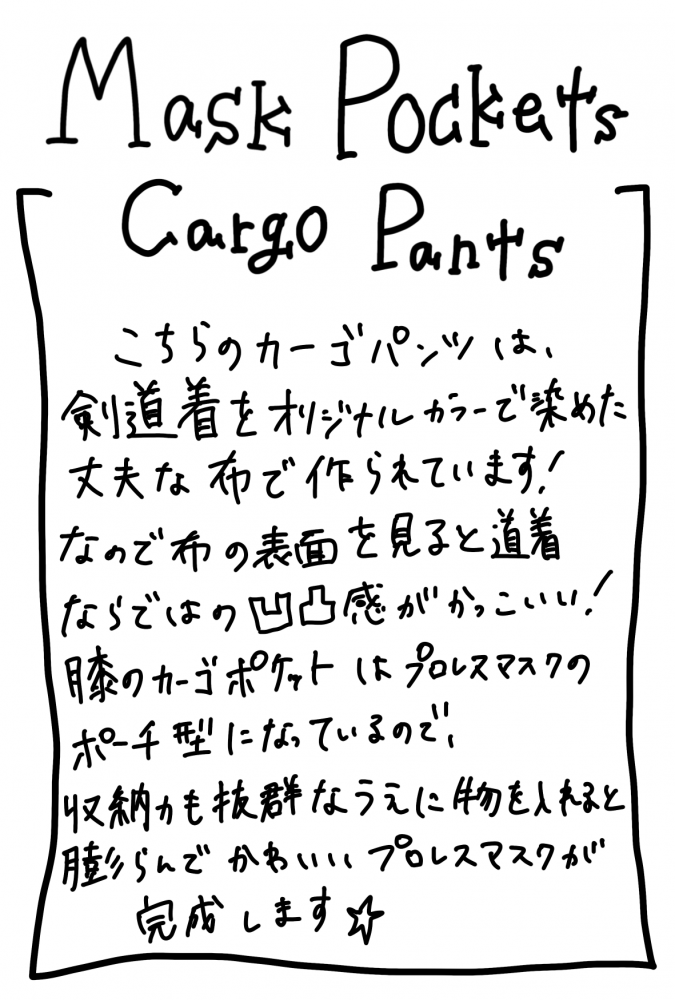 Mask Pockets
Cargo Pants
こちらのカーゴパンツは、
剣道着をオリジナルカラーで染めた
丈夫な布で作られています!
なので布の表面を見ると道着
ならではの凹凸感がかっこいい!
膝のカーゴポケットはプロレスマスクの
ポーチ型になっているので、
収納力も抜群なうえに物を入れると
膨らんでかわいいプロレスマスクが
完成します☆